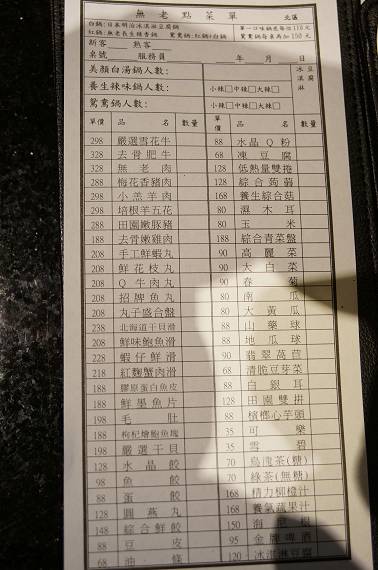 無老點菜單 北區
白鍋:日本明治冰淇淋豆腐鍋 第一口味鍋底每位110元
紅鍋:無老長生辣香鍋 鴛鴦鍋:紅鍋+白鍋 鴛鴦鍋每桌再加150元
新客 熟客
桌號 服務員 年 月 日
美顏白湯鍋人數: 冰淇淋 豆腐
養生辣味鍋人數: 小辣□中辣□大辣□
鴛鴦鍋人數: 小辣□中辣□大辣□
單價 品名 數量 單價 品名 數量
298 嚴選雪花牛 88 水晶Q粉
328 去骨肥牛 68 凍豆腐
328 無老肉 128 低熱量雙捲
288 梅花香豬肉 128 綜合蒟蒻
298 小羔羊肉 168 養生綜合菇
298 培根羊五花 80 濕木耳
288 田園嫩豚豬 80 玉米
188 去骨嫩雞肉 188 綜合青菜盤
208 手工鮮蝦丸 90 高麗菜
208 鮮花枝丸 90 大白菜
208 Q牛肉丸 90 春菊
208 招牌魚丸 80 南瓜
208 丸子盛合盤 80 大黃瓜
238 北海道干貝滑 88 山藥球
208 鮮味鮑魚滑 88 地瓜球
228 蝦仔鮮滑 90 翡翠萵苣
218 紅麴蟹肉滑 68 清脆豆芽菜
188 膠原蛋白魚皮 88 白銀耳
188 鮮墨魚片 128 田園雙拼
198 毛肚 88 檳榔心芋頭
188 枸杞燴鮑魚塊 35 可樂
198 嚴選干貝 35 雪碧
128 水晶餃 70 烏龍茶(糖)
98 魚餃 70 綠茶(無糖)
88 蛋餃 168 精力柳橙汁
128 圓燕丸 168 養氣蔬果汁
148 綜合鮮餃 150 海
88 豆皮 95 金牌啤酒
68 油條 120 冰淇淋豆腐